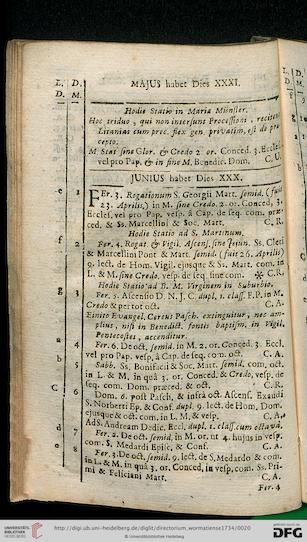 L. D. MAJUS habet Dies XXXI.
D. M.
Hodie Statio in Maria Münster.
Hoc triduo, qui non intersunt Processioni, recitent
Litanias cum prec. flex gen. privatim, est de præ
cepto.
M Stat sine Glor. & Credo 2 or. Conced. 3. Eccles.
vel pro Pap. & in fine M. Benedic. Dom. C. V.
JUNIUS habet Dies XXX.
c 1 FEr. 3. Rogationum S. Georgii Mart. semid. (fuit
23. Aprilis,) in M. sine Credo, 2. or. Conced, 3.
Eccles, vel pro Pap. vesp. à Cap. de seq. com. præ-
ced, & Ss. Marcellini & Soc. Mart. C. R.
Hodie Statio ad S. Martinum.
f 2 Fer. 4. Rogat. & Vigil. Ascens. sine Jejun. Ss. Cleti
& Marcellini Pont & Mart. semid. (fuit 26. Aprilis)
9. lect. de Hom. Vigil. ejusque & Ss. Mart. com. in
L. & M. sine Credo, vesp. de seq. sine com. * C. R.
Hodie Statio ad B. M. Virginem in Suburbio.
g 3 Fer. 5. Ascensio D. N. J. C. dupl. 1. class. P. P. in M.
Credo & per tot oct. C. A.
Finito Evangel. Cereus Pasch. extinguitur, nec am-
plius, nisi in Benedict. fontis baptism. in Vigil.
Pentecostes, accenditur.
a 4 Fer. 6. De oct. semid. in M. 2. or. Conced. 3. Eccl.
vel pro Pap. vesp, à Cap. de seq. com. oct. C. A.
b 5 Sabb. Ss. Bonifacii & Soc. Mart. semid. com, oct.
in L. & M. in quâ 3. or. Conced. & Credo, vesp. de
seq. com. Dom. præced. & oct. C. R.
C 6 Dom. 6. post Pasch, & infra oct. Ascens. Exaudi
S. Norberti Ep. & Conf. dupl. 9. lect. de Hom, Dom.
ejusque & oct. com. in L. M, & vesp. C. A.
Ads. Andream Dedic. Eccl, dupl. 1. class. cum octavâ.
d 7 Fer. 2. De oct. semid, in M. or. ut 4. hujus in vesp.
com. S. Medardi Episc, & Conf. C. A.
e 8 Fer. 3. De oct. semid. 9. lect. de S. Medardo & com.
in L. & M. in quâ 3. or. Conced, in vesp. com. Ss. Pri-
mi & Feliciani Mart. C. A.
Fer. 4
http://digi.ub.uni-heidelberg.de/diglit/directorium_wormatiense1734/0020
© Universitätsbibliothek Heidelberg
UNIVERSITÄTS-
BIBLIOTHEK
HEIDELBERG
DFG